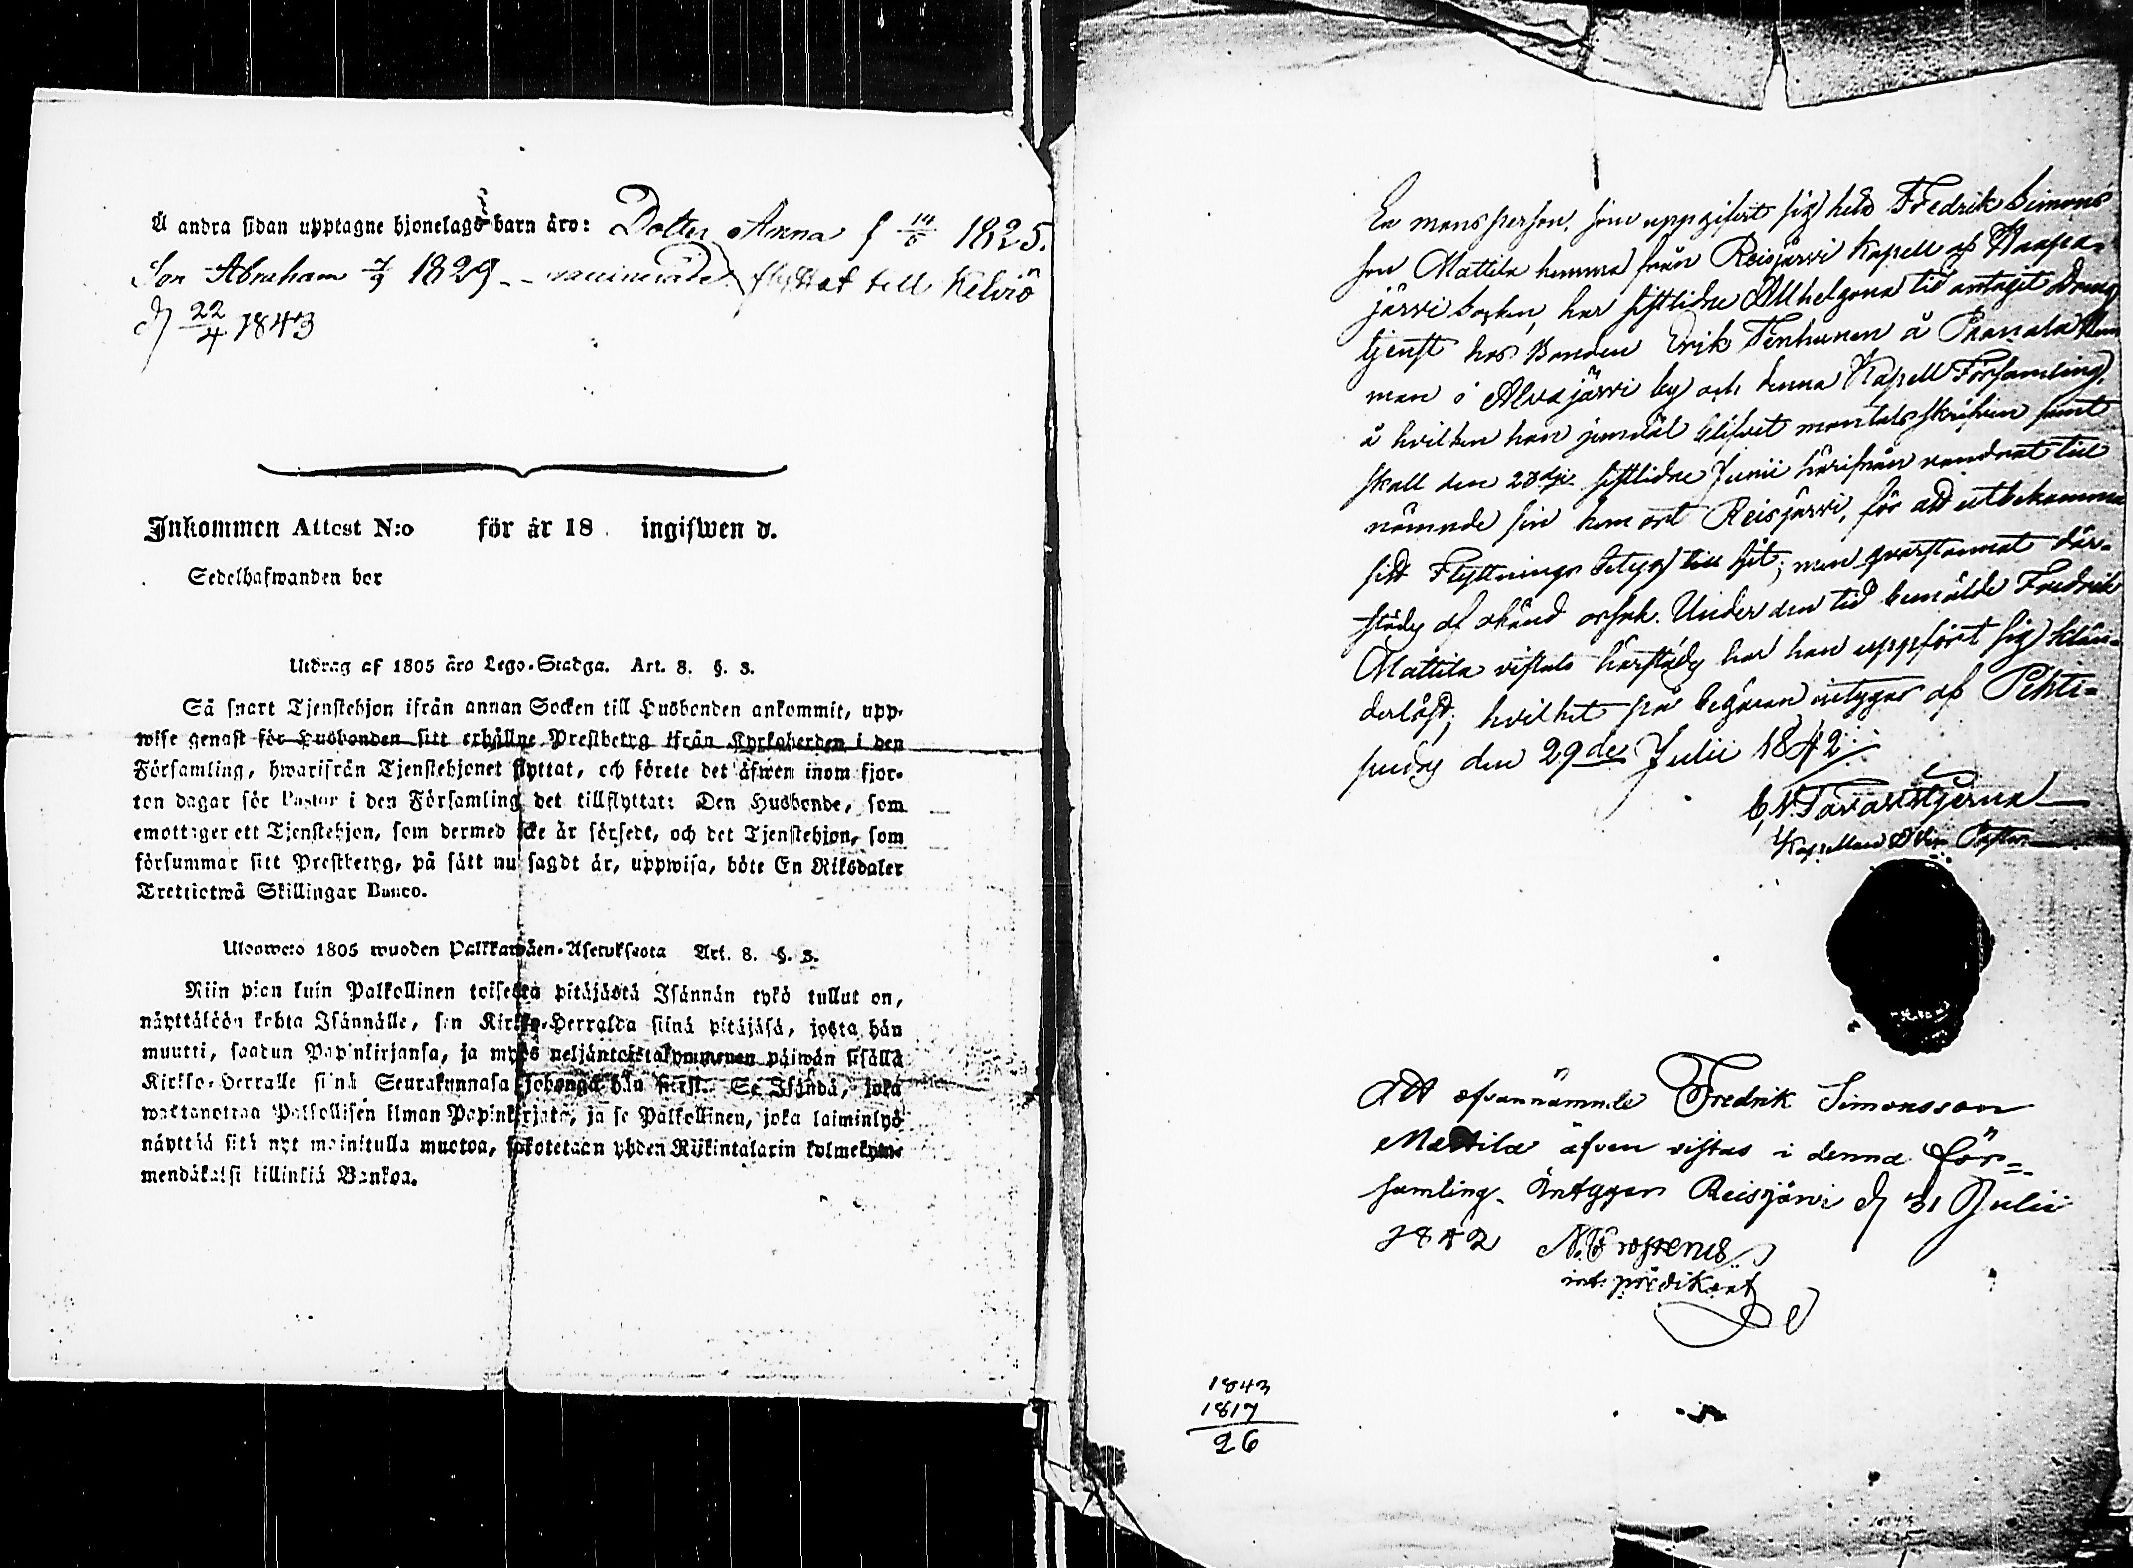 Å andra sidan upptagne hjonelags barn äro: Dotter Anna f 14/5 1825.
Son Abraham 7/9 1829 -- vaccinerade flyttat till Kelviö
d 22/4 1843
Inkommen Attest N:o för år 18 . ingifwen d.
Sedelhafwanden bor
Utdrag af 1805 års Lego-Stadga. Art. 8. §. 3.
Så snart Tjenstehjon ifrån annan Socken till Husbonden ankommit, upp-
wise genast för Husbonden sitt erhållne Prestbetyg ifrån Kyrkoherden i den
Församling, hwarifrån Tjenstehjonet flyttat, och förete det äfwen inom fjor-
ton dagar för Pastor i den Församling det tillflyttat: Den Husbonde, som
emottager ett Tjenstehjon, som dermed icke är försedt, och det Tjenstehjon, som
försummar sitt Prestbetyg, på sätt nu sagdt är, uppwisa, böte En Riksdaler
Trettiotwå Skillingar Banco.
Uloswero 1805 wuoden Palkkawäen-Asetuksesta Art. 8. §. 3.
Niin pian kuin Palkollinen toisesta pitäjästä Isännän tykö tullut on,
näyttäköön kohta Isännälle, sen Kirkko-Herralda siinä pitäjäsä, josta hän
muutti, saadun Papinkirjansa, ja myös neljäntoistakymmenen päiwän sisällä
Kirkko-Herralle siinä Seurakunnasa johonga hän siirsi. Se Isändä, joka
wastanottaa Palkollisen ilman Papinkirjata, ja se Palkollinen, joka laiminlyö
näyttää sitä nyt mainitulla muotoa, sakotetaan yhden Riikintalarin kolmekym-
mendäkaksi killinkiä Bankoa.
En mansperson, som uppgifvit sig heta Fredrik Simons
son Mattila hemma från Reisjärvi Kapell af Haapa-
järvi Socken, har sistlidne Allhelgona tid antagit Dräng
tjenst hos Bonden Erik Tenhunen å Paanala Hem
man i Alvajärvi by och denna Kapell Församling,
å hvilken han jemväl blifvit mantalsskrifven samt
skall den 28de sistlidne Junii härifrån vandrat till
nämnde sin hemort Reisjärvi, för att utbekomma
sitt Flyttnings betyg till hit; men qvarstannat där-
städes af okänd orsak. Under den tid bemälde Fredrik
Mattila vistats härstädes har han uppfört sig klan-
derlöst; hvilket på begäran intygas af Pihti-
pudas den 29de Julii 1842
C. N. Tavaststjerna
Kapellan
Att ofvannämnde Fredrik Simonsson
Mattila äfven vistas i denna för=
samling. Intygar Reisjärvi d 31 Julii
1842 N. Frosterus
int. predikant
1843
1817
26